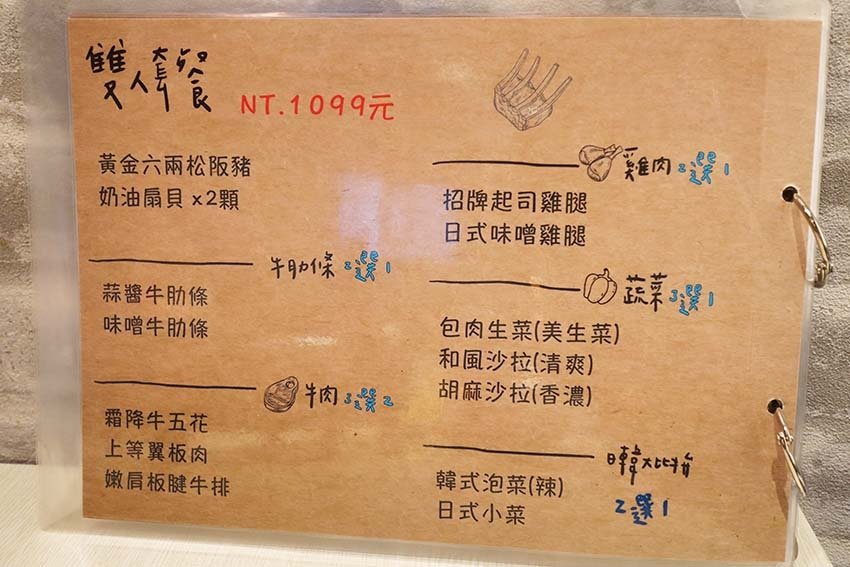 雙人套餐
NT.1099元
黃金六兩松阪豬
奶油扇貝 x2顆
牛肋條 2選1
蒜醬牛肋條
味噌牛肋條
牛肉 3選2
霜降牛五花
上等翼板肉
嫩肩板腱牛排
雞肉 2選1
招牌起司雞腿
日式味噌雞腿
蔬菜 3選1
包肉生菜(美生菜)
和風沙拉(清爽)
胡麻沙拉(香濃)
日韓大比拚
2選1
韓式泡菜(辣)
日式小菜